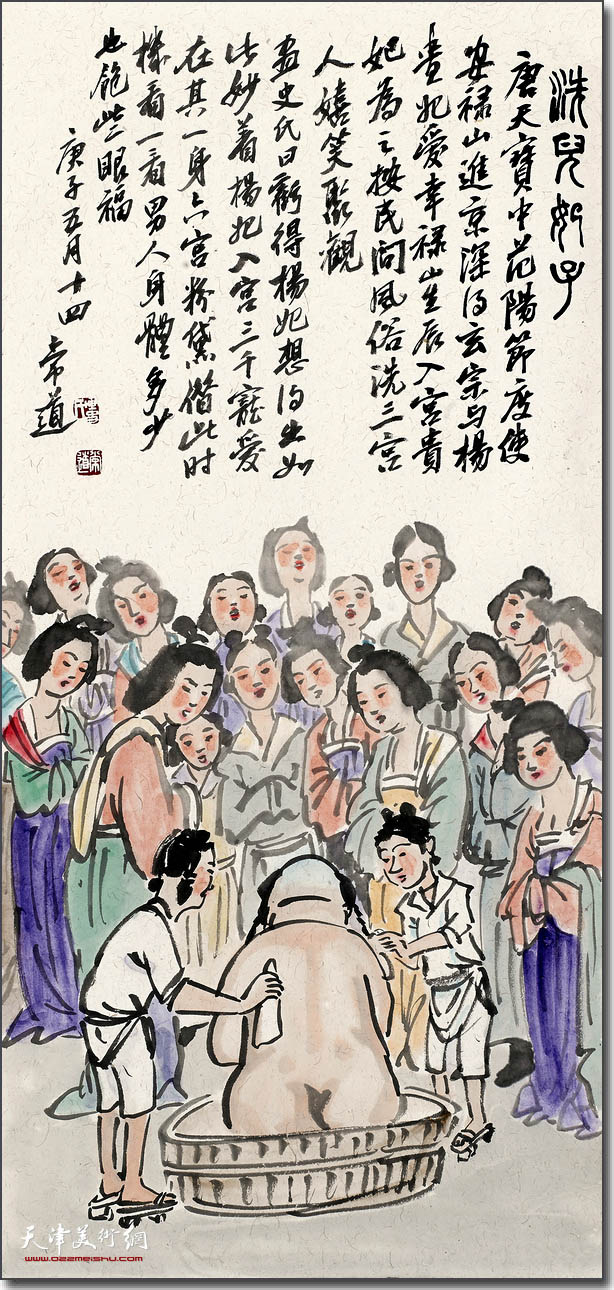 洗兒如子
唐天寶中范陽節度使
安禄山進京深得玄宗与楊
貴妃愛幸禄山生辰入宫貴
妃為之按民间風俗洗三宫
人嬉笑聚觀
畫史氏曰虧得楊妃想得出如
此妙着楊妃入宫三千寵愛
在其一身六宫粉黛借此时
機看一看男人身體多少
也飽些眼福
庚子五月十四 常道
天津美術網
www.022meishu.com